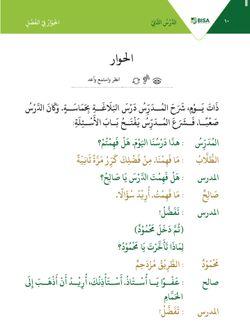 الحِوَارُ فِي الفَصْلِ
الدَّرْسُ الثَّانِي
BISA
١٠
الحوار
انظر واستمع وأعد
ذَاتَ يَوْمٍ، شَرَحَ المُدَرِّسُ دَرْسَ البَلَاغَةِ بِحَمَاسَةٍ. وَكَانَ الدَّرْسُ
صَعْبًا. فَشَرَعَ المُدَرِّسُ يَفْتَحُ بَابَ الأَسْئِلَةِ:
المُدَرِّسُ : هٰذَا دَرْسُنَا اليَوْمَ، هَلْ فَهِمْتُمْ؟
الطُّلَّابُ : مَا فَهِمْنَا. مِنْ فَضْلِكَ كَرِّرْ مَرَّةً ثَانِيَةً
المدرس : هَلْ فَهِمْتَ الدَّرْسَ يَا صَالِحُ؟
صَالِحٌ : مَا فَهِمْتُ، أُرِيْدُ سُؤَالًا.
المدرس : تَفَضَّلْ!
(ثُمَّ دَخَلَ مَحْمُوْدٌ)
لِمَاذَا تَأَخَّرْتَ يَا مَحْمُوْدُ؟
مَحْمُوْدٌ : الطَّرِيْقُ مُزْدَحِمٌ
صالح : عَفْوًا يَا أُسْتَاذُ، أَسْتَأْذِنُكَ، أُرِيْدُ أَنْ أَذْهَبَ إِلَى
الحَمَّامِ
المدرس : تَفَضَّلْ!